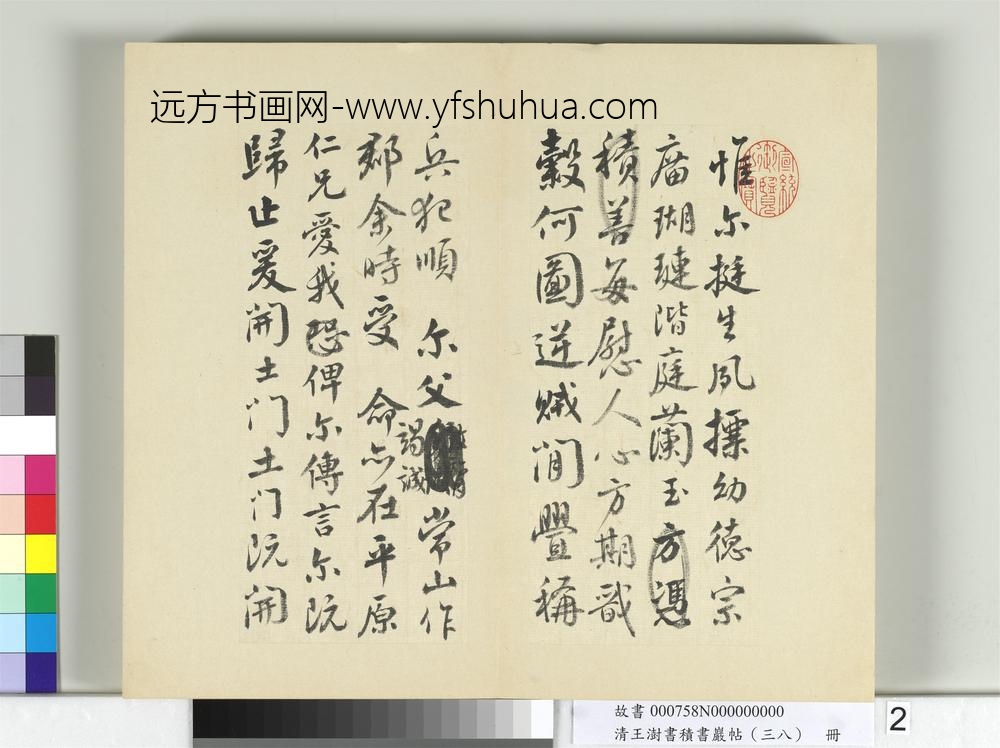 远方书画网-www.yfshuhua.com
惟尔挺生夙摽幼德宗
庿瑚璉階庭蘭玉方憑
積善每慰人心方期戩
穀何圖逆賊閒舋稱
兵犯順 尔父竭誠常山作
郡余時受 命亦在平原
仁兄愛我恐俾尔傳言尔阮
歸止爰開土门土门阮開
宣統御覽之寶
故書 000758N000000000
清王澍書積書巖帖（三八） 冊
2